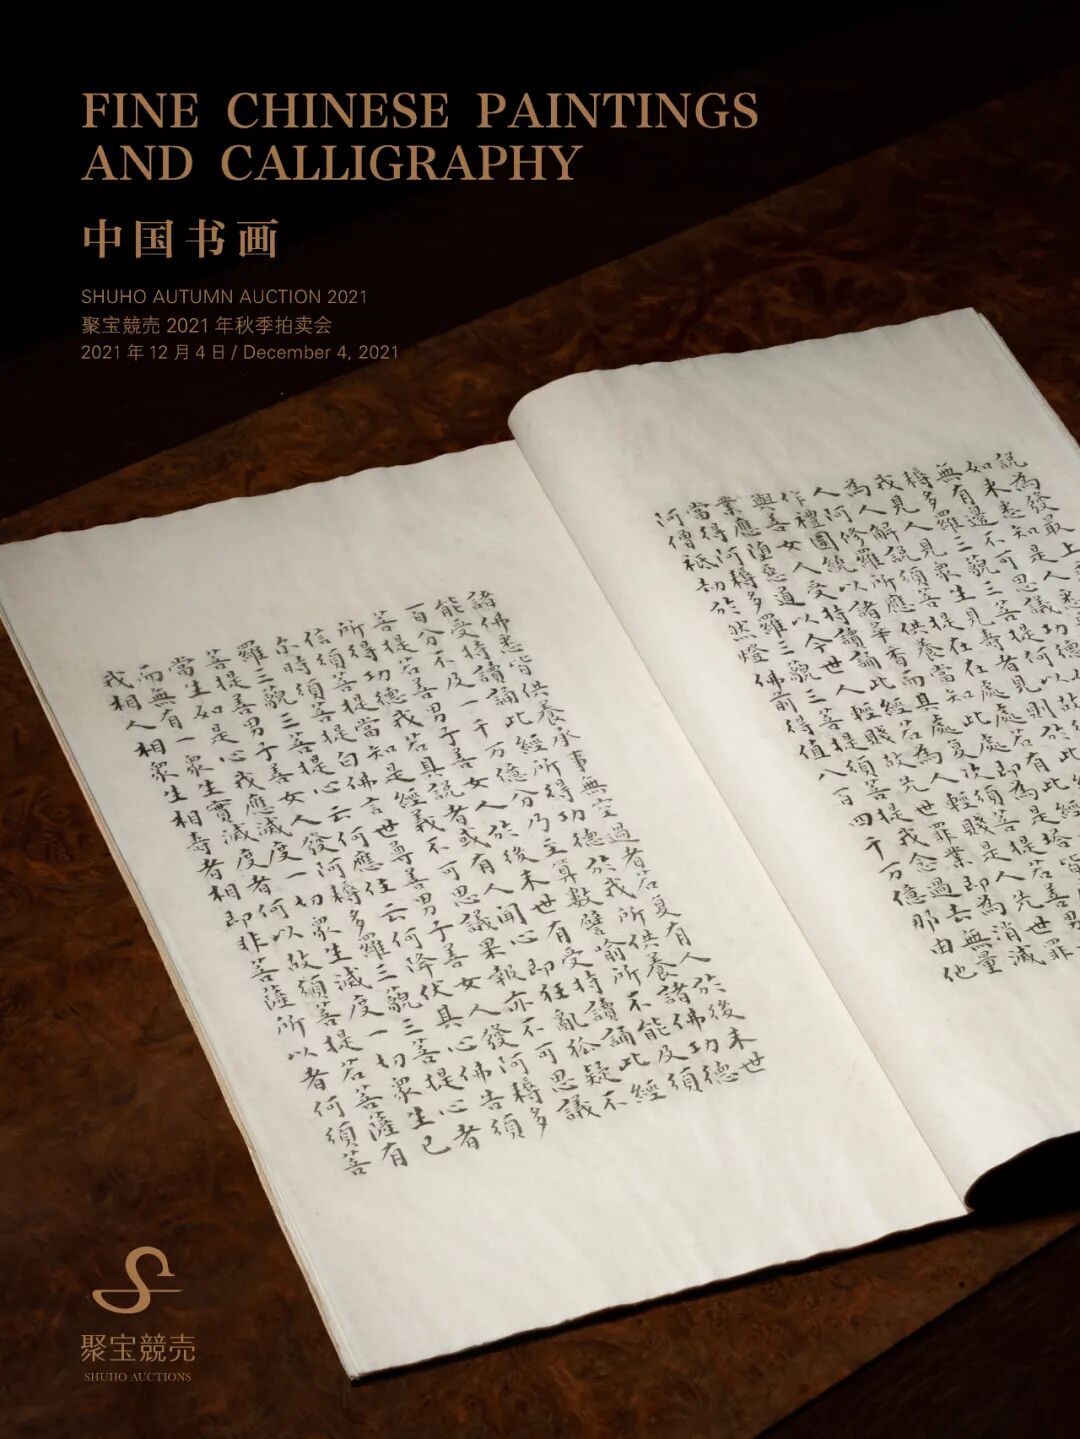 FINE CHINESE PAINTINGS
AND CALLIGRAPHY
中国书画
SHUHO AUTUMN AUCTION 2021
聚宝競売 2021 年秋季拍卖会
2021 年 12 月 4 日 / December 4, 2021
說為發最上
如来悉知是人悉
無有邊不可思議功德
耨多羅三藐三菩提何以故
我見人見衆生見壽者見則於此
為人解說須菩提在在處處若有此經
人阿修羅所應供養當知此處即為是塔皆
作禮圍繞以諸華香而其處復次須菩提若善男
與善女人受持讀誦此經若為人輕賤是人先世罪
業應墮惡道以今世人輕賤故先世罪業即為消滅
當得阿耨多羅三藐三菩提須菩提我念過去無量
阿僧祇劫於然燈佛前得值八百四千万億那由他
諸佛悉皆供養承事無空過者若复有人於後末世
能受持讀誦此經所得功德於我所供養諸佛功德
百分不及一千万億分乃至算數譬喻所不能及須
菩提若善男子善女人於後末世有受持讀誦此經
所得功德我若具說者或有人聞心即狂亂狐疑不
信須菩提當知是經義不可思議果報亦不可思議
尒時須菩提白佛言世尊善男子善女人發阿耨多
羅三藐三菩提心云何應住云何降伏其心佛告須
菩提善男子善女人發阿耨多羅三藐三菩提心者
當生如是心我應滅度一切衆生滅度一切衆生已
而無有一衆生實滅度者何以故須菩提若菩薩有
我相人相衆生相壽者相即非菩薩所以者何須菩
聚宝競売
SHUHO AUCTIONS